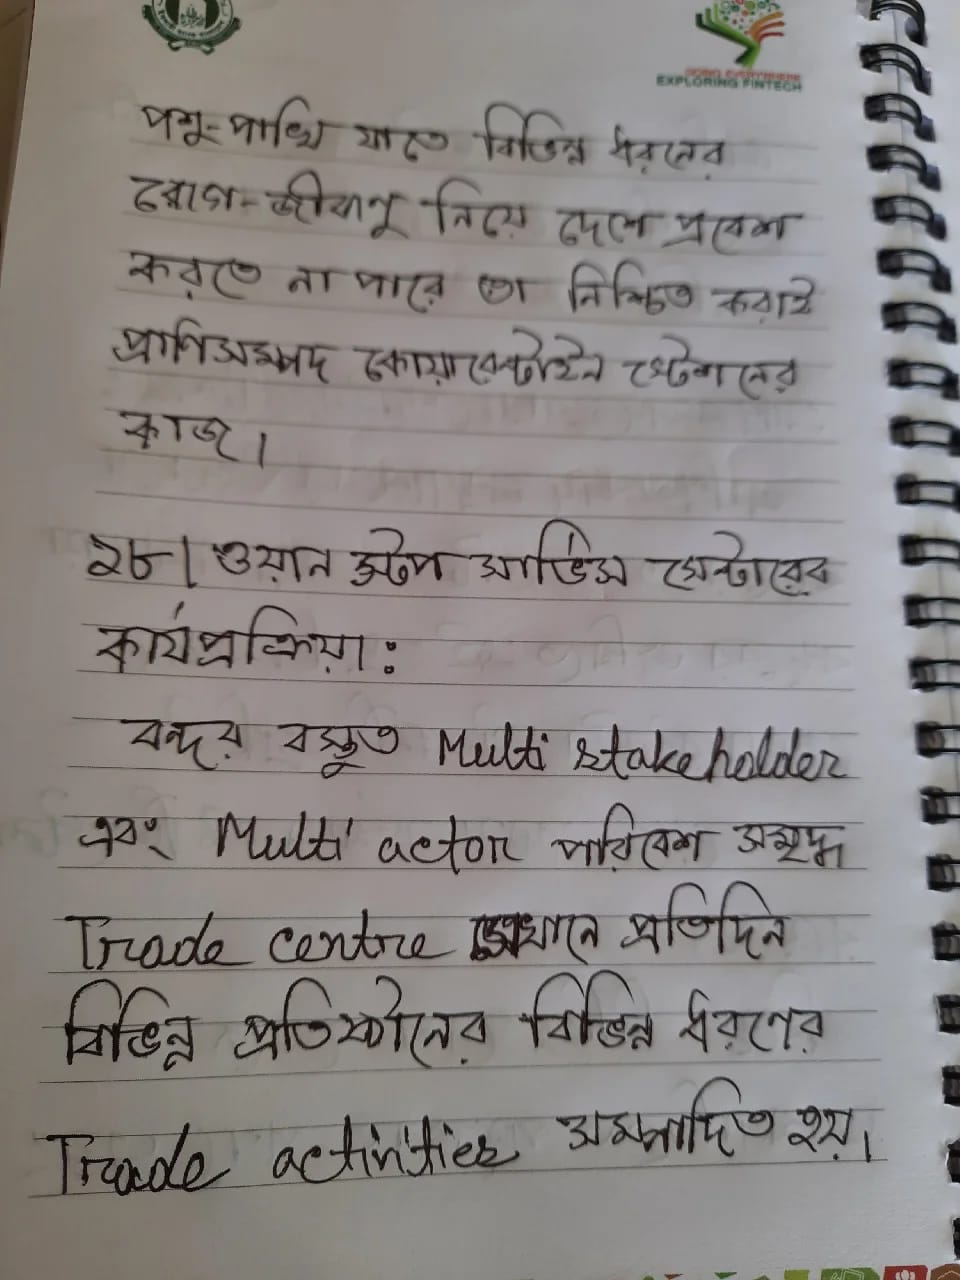 GOING EVERYWHERE
EXPLORING FINTECH
পশু-পাখি যাতে বিভিন্ন ধরনের
রোগ-জীবাণু নিয়ে দেশে প্রবেশ
করতে না পারে তা নিশ্চিত করাই
প্রাণিসম্পদ কোয়ারেন্টাইন স্টেশনের
কাজ।
২৮। ওয়ান স্টপ সার্ভিস সেন্টারের
কার্যপ্রক্রিয়া:
বন্দর বস্তুত Multi stakeholder
এবং Multi actor পরিবেশ সমৃদ্ধ
Trade centre যেখানে প্রতিদিন
বিভিন্ন প্রতিষ্ঠানের বিভিন্ন ধরণের
Trade activities সম্পাদিত হয়।